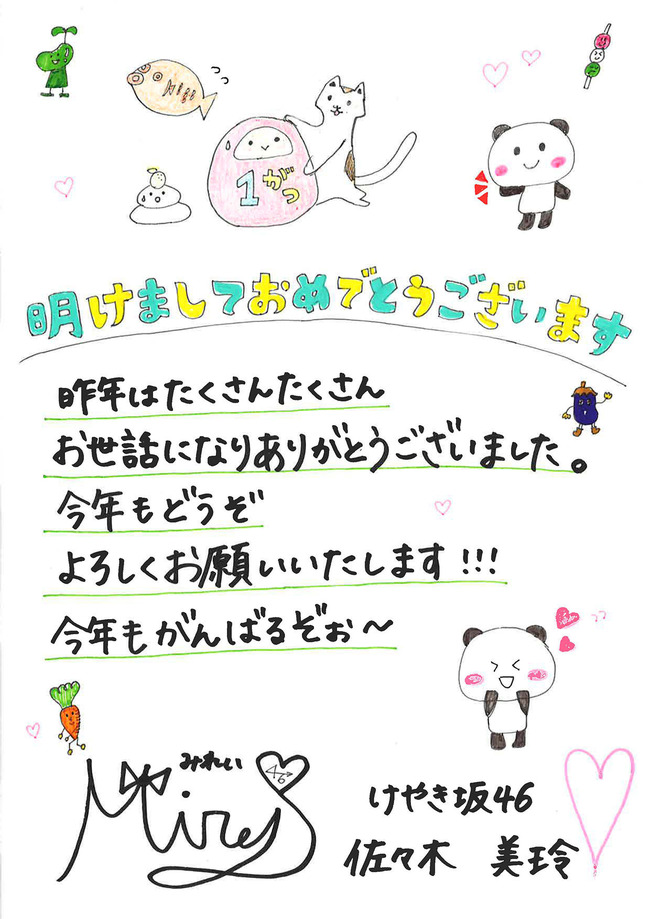 1がつ
明けましておめでとうございます
昨年はたくさんたくさん
お世話になりありがとうございました。
今年もどうぞ
よろしくお願いいたします!!!
今年もがんばるぞぉ〜
みれい
Mirei
46
けやき坂46
佐々木 美玲